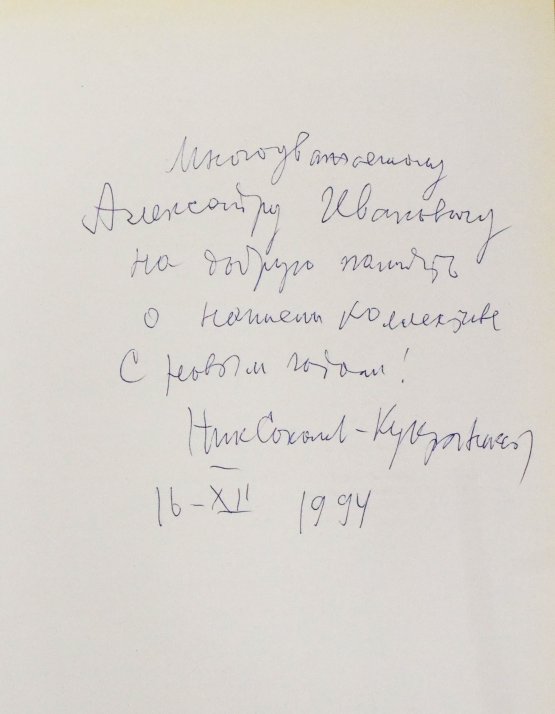 Многоуважаемому
Александру Ивановичу
на добрую память
о нашем коллективе
С новым годом!
Ник Соколов-Кукрыниксы
16-XII 1994